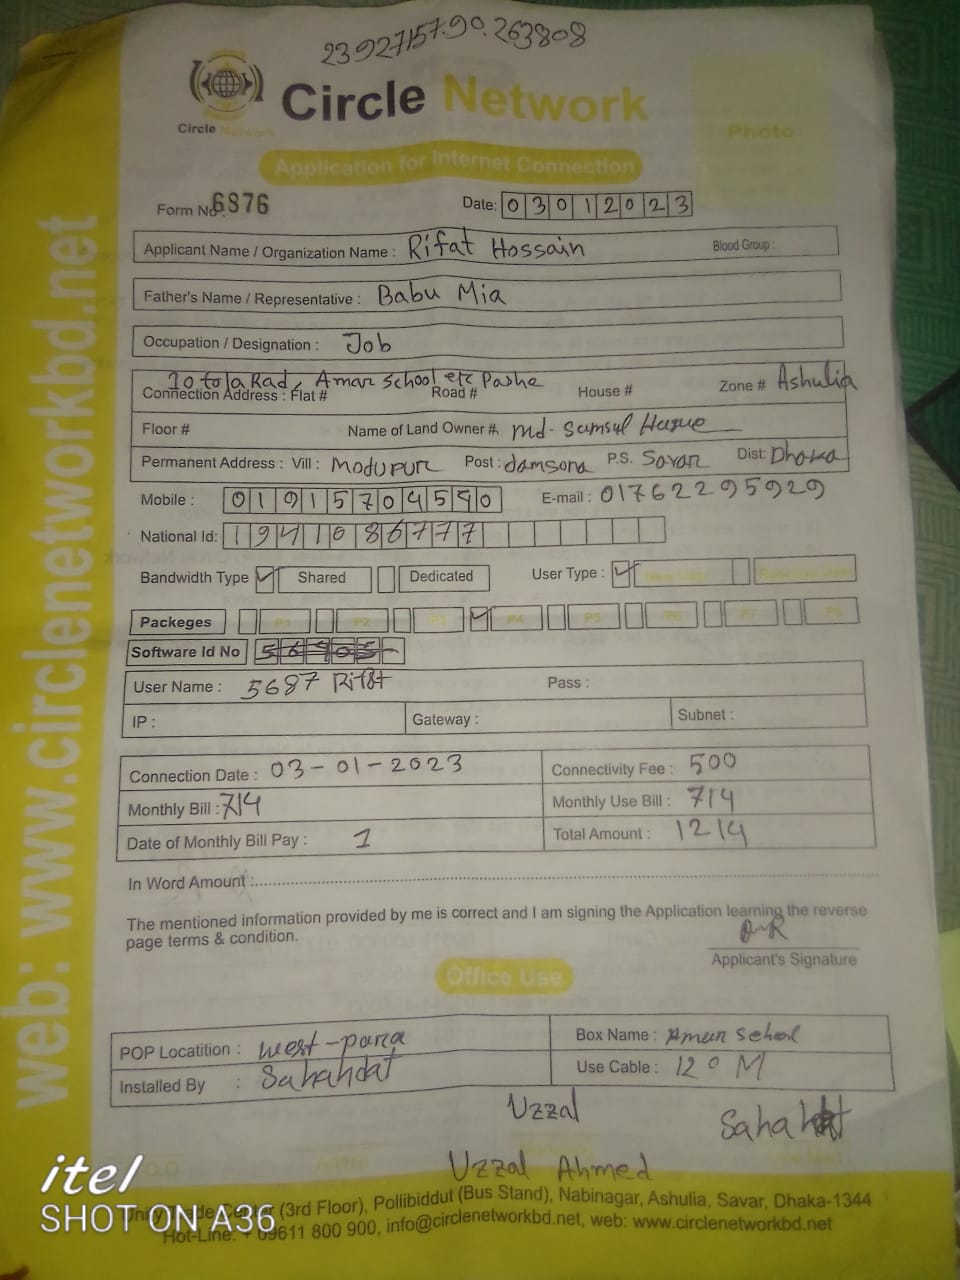 23.927157.90.263808
Circle Network
Circle Network
Photo
Application for Internet Connection
Form No. 6876
Date: 03012023
Applicant Name / Organization Name : Rifat Hossain Blood Group :
Father's Name / Representative : Babu Mia
Occupation / Designation : Job
10 tola Rad, Amar School etc Pasha
Connection Address : Flat # Road # House # Zone # Ashulia
Floor # Name of Land Owner #. md- Samsul Haque
Permanent Address : Vill : Modupur Post : damsona P.S. Savar Dist: Dhaka
Mobile : 01915704590 E-mail : 01762295929
National Id: 1941086777
Bandwidth Type Shared Dedicated User Type : New User
Packeges P1 P2 P3 P4 P5 P6 P7 P8
Software Id No
User Name : 5687 Rifat Pass :
IP : Gateway : Subnet :
Connection Date : 03-01-2023 Connectivity Fee : 500
Monthly Bill : 714 Monthly Use Bill : 714
Date of Monthly Bill Pay : 1 Total Amount : 1214
In Word Amount :
The mentioned information provided by me is correct and I am signing the Application learning the reverse
page terms & condition.
Applicant's Signature
Office Use
POP Locatition : west-para Box Name : Ameer School
Installed By : Sahahdat Use Cable : 120 M
Uzzal
Uzzal Ahmed
(3rd Floor), Pollibiddut (Bus Stand), Nabinagar, Ashulia, Savar, Dhaka-1344
Hot-Line: + 09611 800 900, info@circlenetworkbd.net, web: www.circlenetworkbd.net
web: www.circlenetworkbd.net
itel
SHOT ON A36